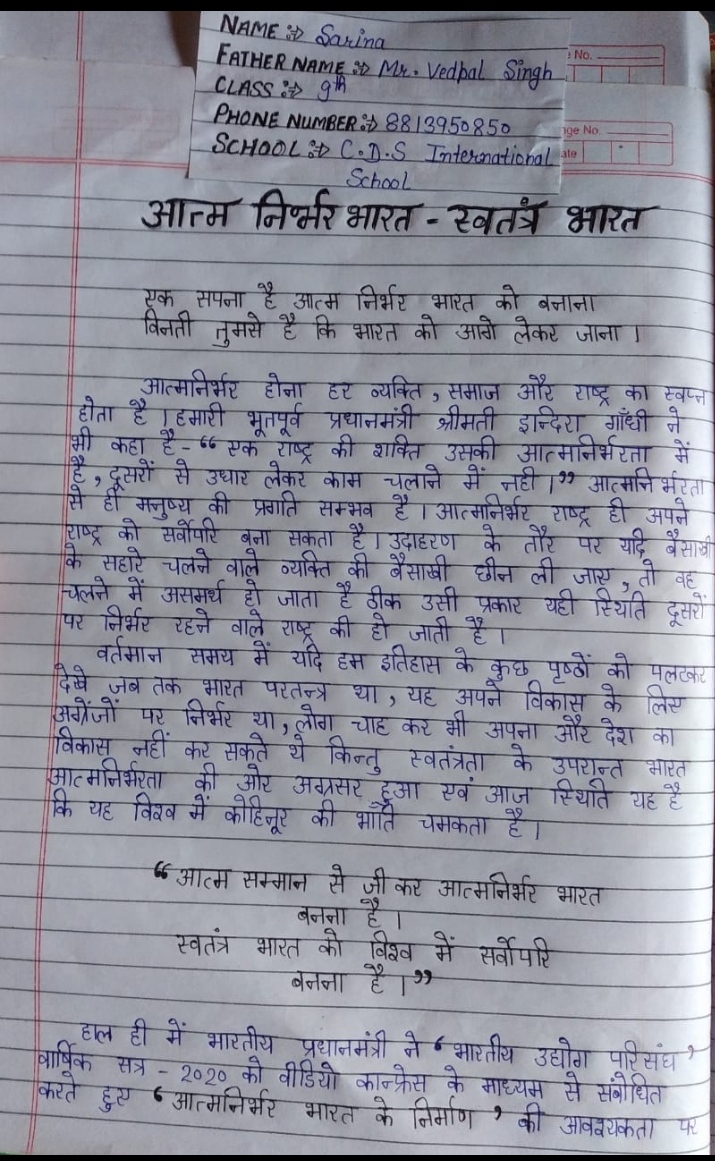 NAME :⇒ Sarina
FATHER NAME :⇒ Mr. Vedpal Singh
CLASS :⇒ 9th
PHONE NUMBER :⇒ 8813950850
SCHOOL :⇒ C.D.S International
School
No.
ge No.
ate
आत्म निर्भर भारत - स्वतंत्र भारत
एक सपना है आत्म निर्भर भारत को बनाना
विनती तुमसे है कि भारत को आगे लेकर जाना ।
आत्मनिर्भर होना हर व्यक्ति, समाज और राष्ट्र का स्वप्न
होता है । हमारी भूतपूर्व प्रधानमंत्री श्रीमती इन्दिरा गाँधी ने
भी कहा है - “ एक राष्ट्र की शक्ति उसकी आत्मनिर्भरता में
है, दूसरों से उधार लेकर काम चलाने में नही । ” आत्मनिर्भरता
से ही मनुष्य की प्रगति सम्भव है । आत्मनिर्भर राष्ट्र ही अपने
राष्ट्र को सर्वोपरि बना सकता है । उदाहरण के तौर पर यदि बैसाखी
के सहारे चलने वाले व्यक्ति की बैसाखी छीन ली जाए, तो वह
चलने में असमर्थ हो जाता है ठीक उसी प्रकार यही स्थिति दूसरों
पर निर्भर रहने वाले राष्ट्र की हो जाती है ।
वर्तमान समय में यदि हम इतिहास के कुछ पृष्ठों को पलटकर
देखे जब तक भारत परतन्त्र था, यह अपने विकास के लिए
अंग्रेंजों पर निर्भर था, लोग चाह कर भी अपना और देश का
विकास नहीं कर सकते थे किन्तु स्वतंत्रता के उपरान्त भारत
आत्मनिर्भरता की ओर अग्रसर हुआ एवं आज स्थिति यह है
कि यह विश्व में कोहिनूर की भाँति चमकता है ।
“ आत्म सम्मान से जी कर आत्मनिर्भर भारत
बनना है ।
स्वतंत्र भारत को विश्व में सर्वोपरि
बनना है । ”
हाल ही में भारतीय प्रधानमंत्री ने ‘ भारतीय उद्योग परिसंघ ’
वार्षिक सत्र - 2020 को वीडियो कान्फ्रेस के माध्यम से संबोधित
करते हुए ‘ आत्मनिर्भर भारत के निर्माण ’ की आवश्यकता पर